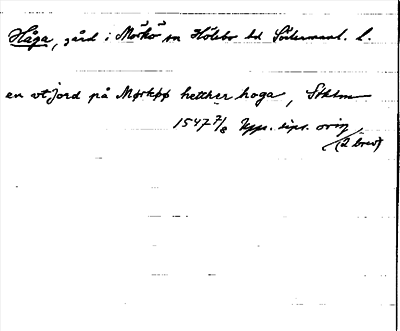 Håga, gård i Mörkö sn Hölebo hd Södermanl. l.
en vtjord på Mørkøø hetther hoga, Sthlm
1547 7/8 Upps. dipl. orig.
(2 brev)